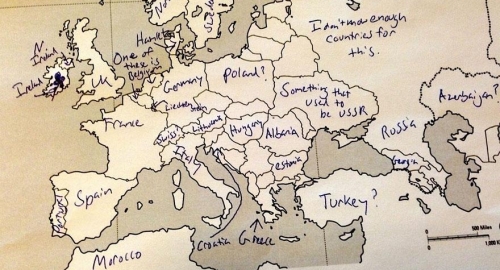 Nor
Sweden
I don't know enough
countries for
this.
N.
Ireland
Ireland
UK
Hamlet
One of
these is
Belgium
Germany
Poland?
Something that
used to
be USSR
Azerbaijan?
Liechtenstein
France
Swiss
Lithuania
Hungary
Albania
Russia
Georgia
Italy
Estonia
Spain
Portugal
Turkey?
Croatia
Greece
Morocco
500 Miles